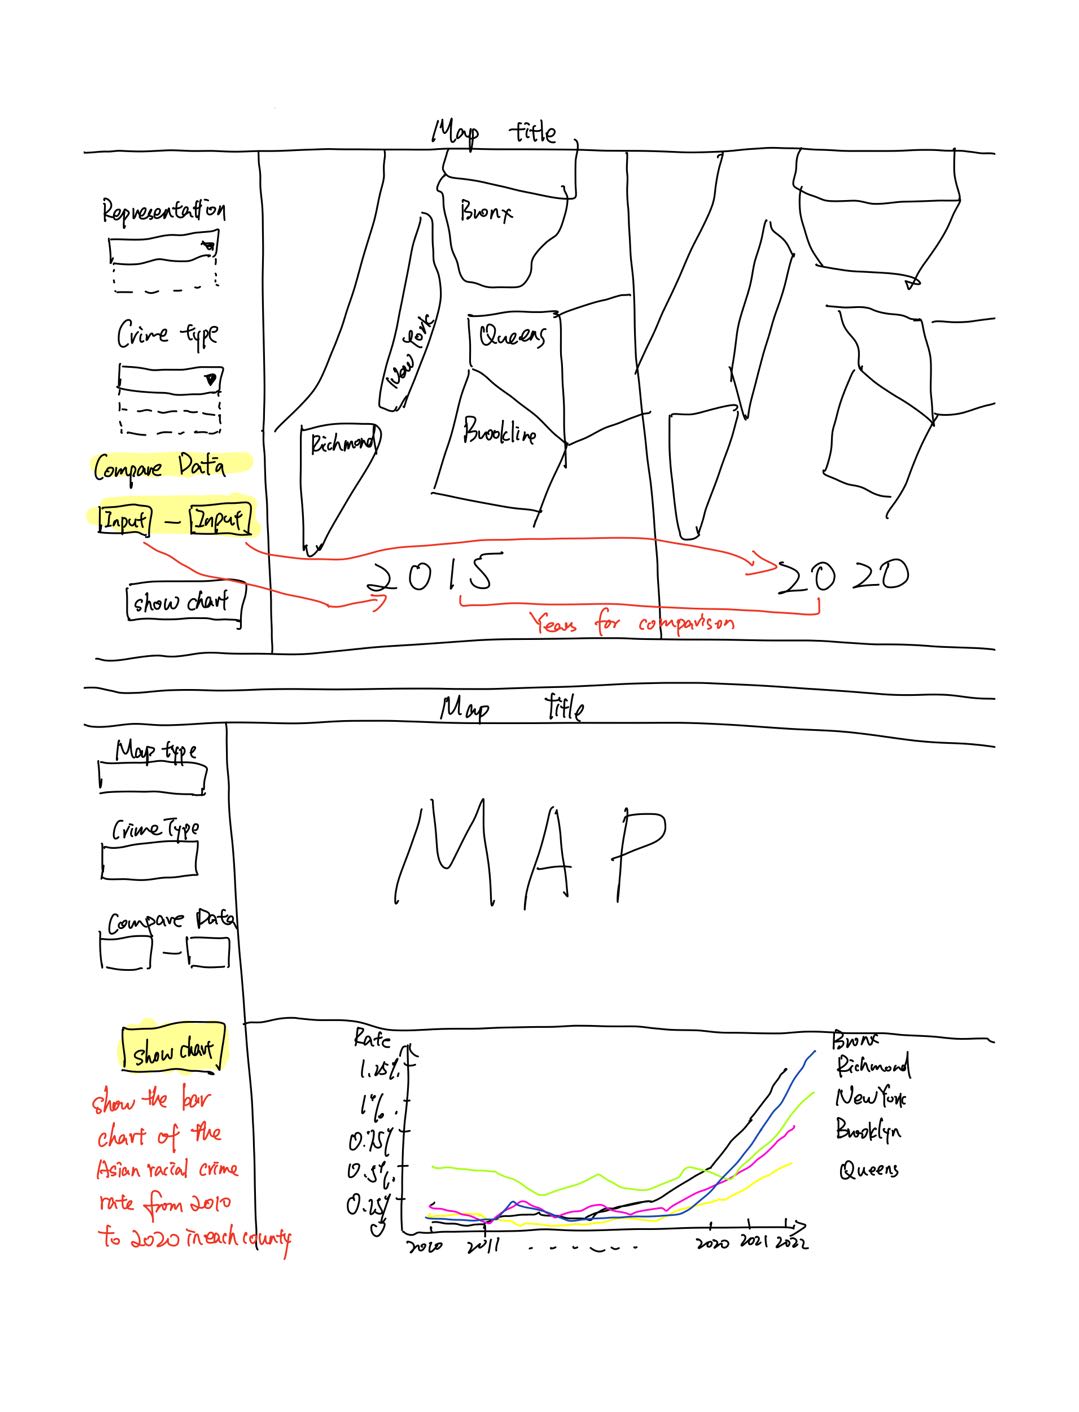 Map title
Representation
Crime type
Compare Data
Input - Input
show chart
Bronx
New York
Queens
Richmond
Brookline
2015
2020
Years for comparison
Map title
Map type
Crime Type
Compare Data
-
show chart
show the bar
chart of the
Asian racial crime
rate from 2010
to 2020 in each county
MAP
Rate
1.25%
1%
0.75%
0.5%
0.25%
0
2010 2011 2020 2021 2022
Bronx
Richmond
New York
Brooklyn
Queens